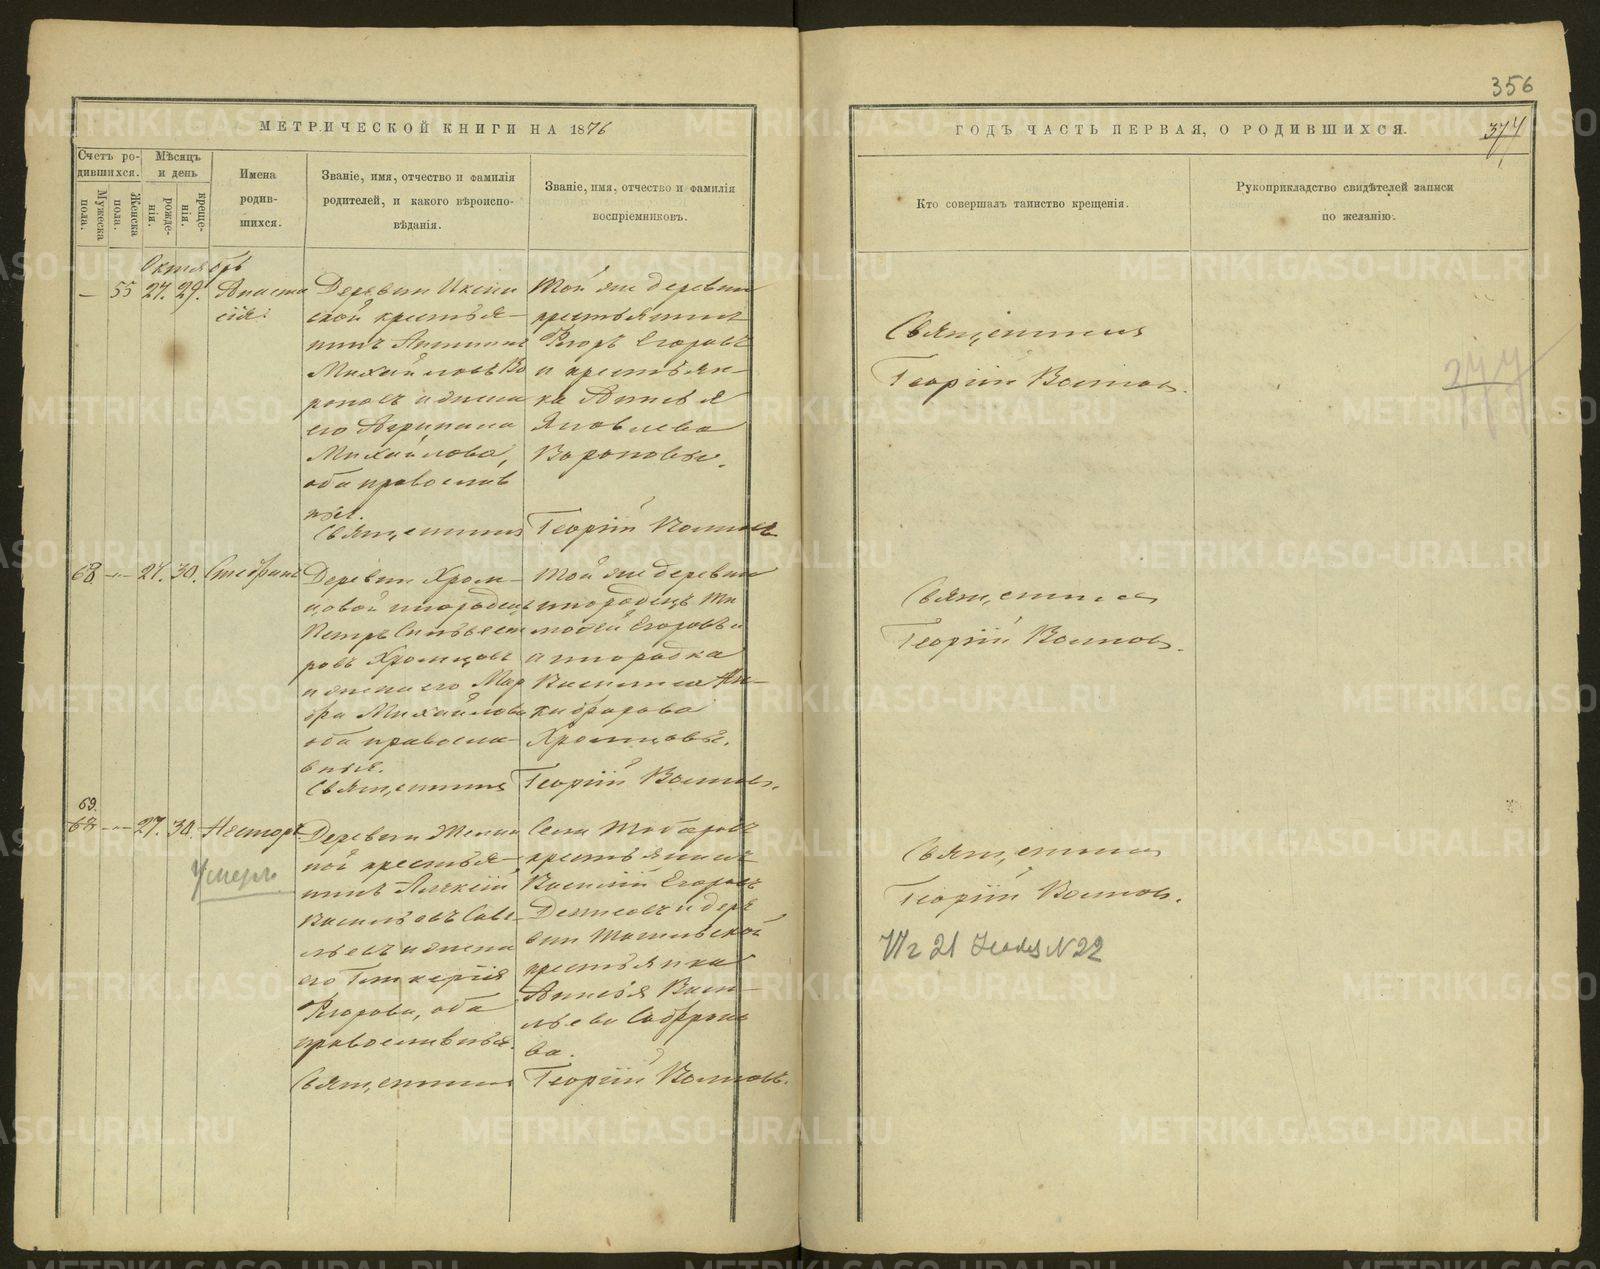 356
МЕТРИЧЕСКОЙ КНИГИ НА 1876
ГОДЪ ЧАСТЬ ПЕРВАЯ, О РОДИВШИХСЯ.
377
Счетъ ро-
дившихся.
Мужеска
пола.
Женска
пола.
Мѣсяцъ
и день
рожде-
нія.
креще-
нія.
Имена
родив-
шихся.
Званіе, имя, отчество и фамилія
родителей, и какого вѣроиспо-
вѣданія.
Званіе, имя, отчество и фамилія
воспріемниковъ.
Кто совершалъ таинство крещенія.
Рукоприкладство свидѣтелей записи
по желанію.
Октябрь
— 55 27. 29.
Анаста
сія.
Деревни
ской крестья-
нинъ
Михайловъ Во
роновъ и жена
его Агрипина
Михайлова,
оба православ
ные.
Той же деревни
крестьянинъ
Егоръ Егоровъ
и крестьян-
ка Анисья
Яковлева
Вороновы.
Священникъ Георгій
Священникъ
Георгій
277
68 — 27. 30. Стефанъ
Деревни Хром-
цовой инородецъ
Петръ Сильвест
ровъ Хромцовъ
и жена его Мар
фа Михайлова
оба правосла-
вные.
Той же деревни
инородецъ Ти
мофей Егоровъ
и инородка
Василиса Ни-
кифорова
Хромцовы.
Священникъ Георгій
Священникъ
Георгій
69.
68 — 27. 30. Несторъ
Умеръ
Деревни
ной крестья-
нинъ Алексій
Васильевъ Саве-
льевъ и жена
его Гликерія
Егорова, оба
православные.
Села
крестьянинъ
Василій Егоровъ
Денисовъ и дере
вни
крестьянка
Анисья Васи-
льева Софроно
ва.
Священникъ Георгій
Священникъ
Георгій
21 N 22
METRIKI.GASO-URAL.RU